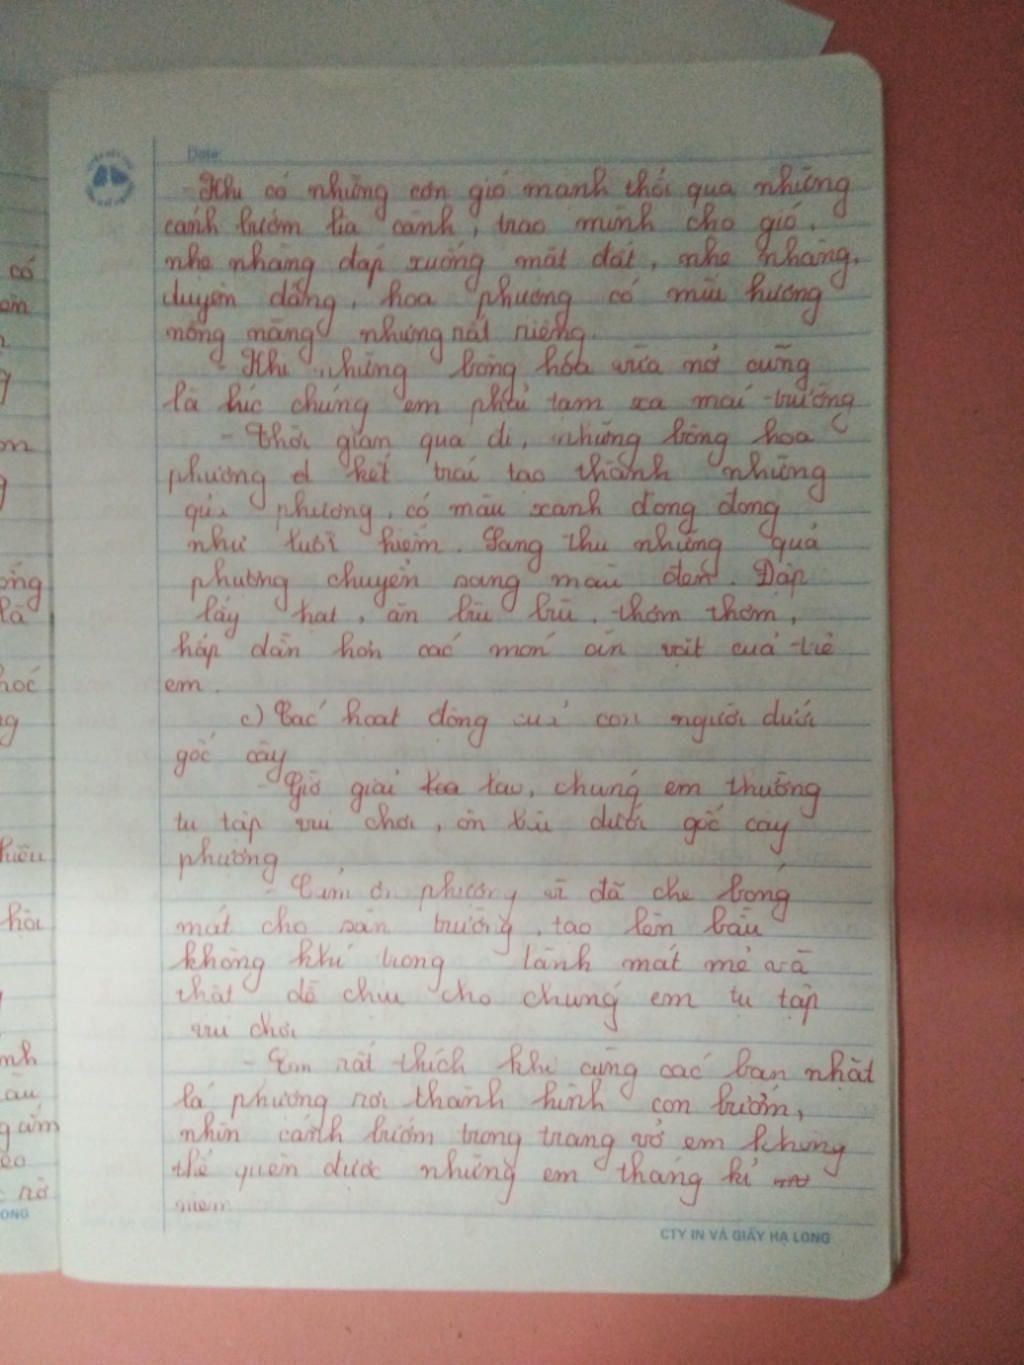 Date:
- Khi có những cơn gió mạnh thổi qua những
cánh bướm lìa cành, trao mình cho gió.
nhẹ nhàng đáp xuống mặt đất, nhẹ nhàng,
duyên dáng, hoa phượng có mùi hương
nồng nàng nhưng rất riêng.
- Khi những bông hóa vừa nở cũng
là lúc chúng em phải tạm xa mái trường
- Thời gian qua đi, những bông hoa
phượng kết trái tạo thành những
quả phượng, có màu xanh đong đong
như lưỡi kiếm. Sang thu những quả
phượng chuyển sang màu đen. Đập
lấy hạt, ăn bùi bùi, thơm thơm,
hấp dẫn hơn các món ăn vặt của trẻ
em.
c) Các hoạt động của con người dưới
gốc cây
- Giờ giải lao, chúng em thường
tụ tập vui chơi, ôn bài dưới gốc cây
phượng
- Cảm ơn phượng vì đã che bóng
mát cho sân trường, tạo lên bầu
không khí trong lành mát mẻ và
thật dễ chịu cho chúng em tụ tập
vui chơi
- Em rất thích khi cùng các bạn nhặt
lá phượng rơi thành hình con bướm,
nhìn cánh bướm trong trang vở em không
thể quên được những em tháng kỉ
niệm
CTY IN VÀ GIẤY HẠ LONG